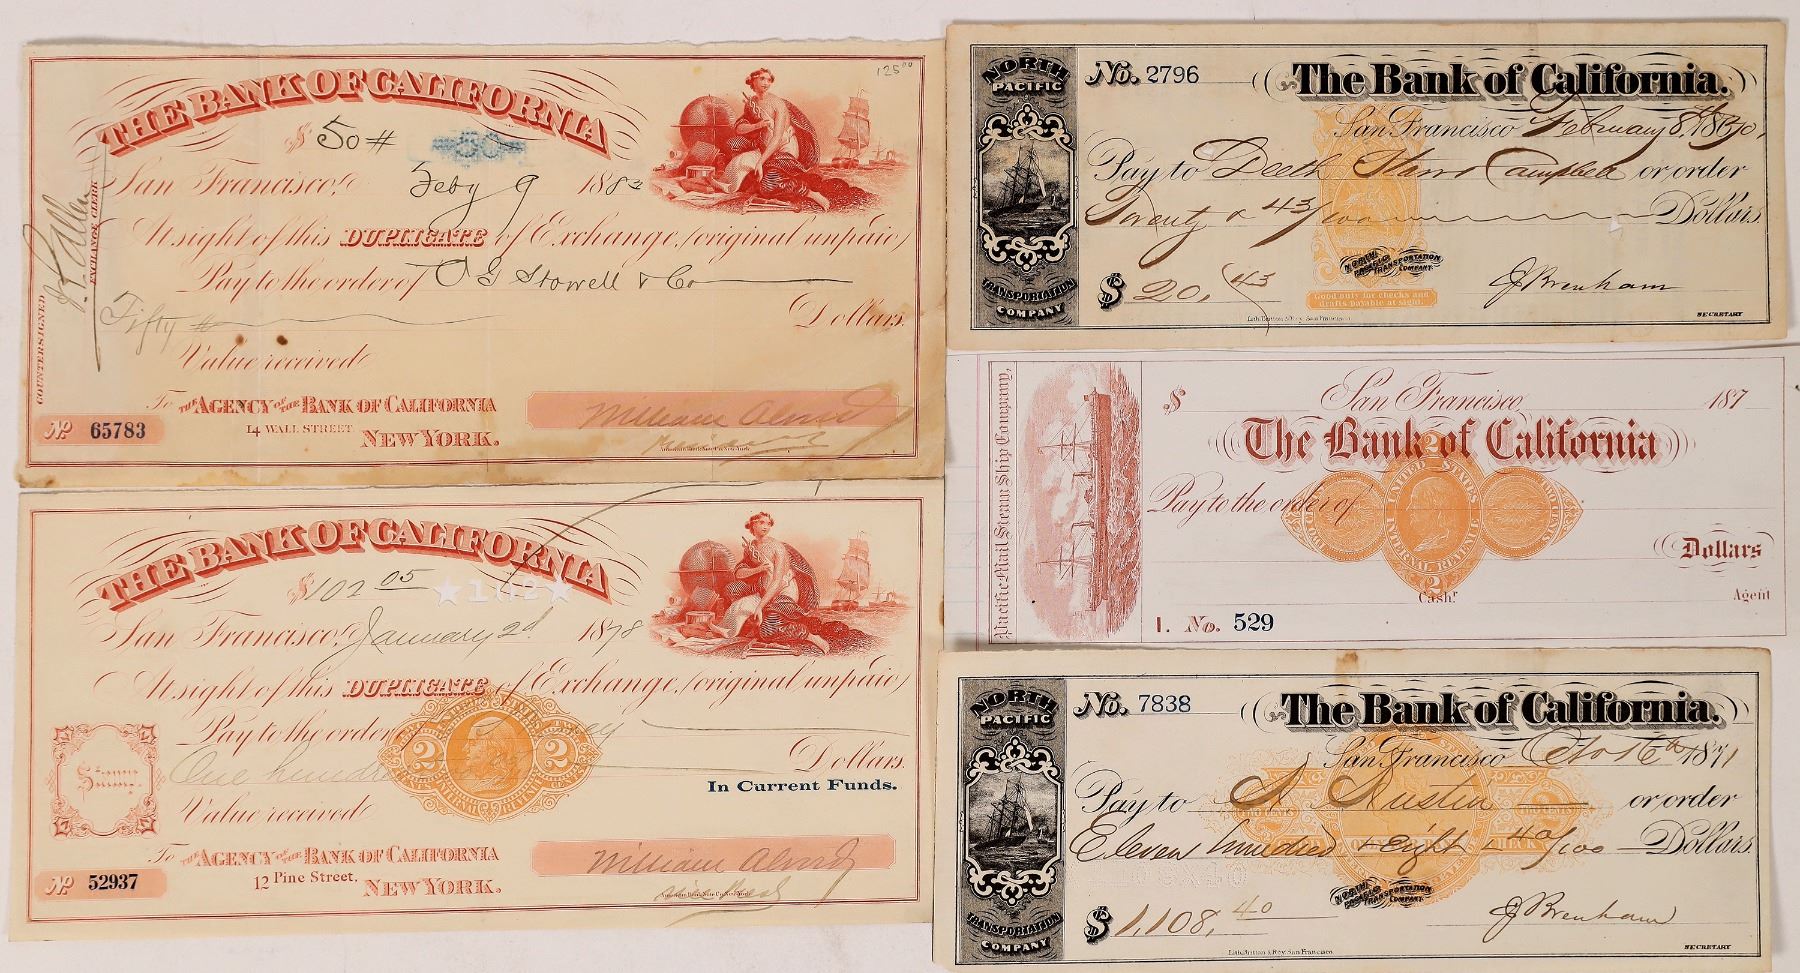 125⁰⁰
THE BANK OF CALIFORNIA
$ 50 #
50
San Francisco, Feby 9 1883
At sight of this DUPLICATE of Exchange, (original unpaid)
Pay to the order of O G Stowell & Co
Fifty # Dollars.
Value received
To THE AGENCY OF THE BANK OF CALIFORNIA
14 WALL STREET. NEW YORK.
No 65783
William Alvord
President
COUNTERSIGNED
EXCHANGE CLERK
THE BANK OF CALIFORNIA
$ 102 05
★102★
San Francisco, January 2d 1878
At sight of this DUPLICATE of Exchange, (original unpaid)
Pay to the order
One hundred Dollars.
In Current Funds.
Stamp.
UNITED STATES
2 2
INTERNAL REVENUE
Value received
To THE AGENCY OF THE BANK OF CALIFORNIA
12 Pine Street, NEW YORK.
No 52937
William Alvord
NORTH PACIFIC
TRANSPORTATION COMPANY
No. 2796 The Bank of California.
San Francisco February 8th 1870,
Pay to Deeth Starr Campbell or order
Twenty & 43/100 Dollars.
NORTH PACIFIC TRANSPORTATION COMPANY.
$ 20, 43
Good only for checks and
drafts payable at sight.
J Brenham
SECRETARY
Lith. Britton & Rey, San Francisco.
Pacific Mail Steam Ship Company,
$ San Francisco, 187
The Bank of California
Pay to the order of
2
UNITED STATES
TWO CENTS
INTERNAL REVENUE
2
Dollars
Cashr Agent
1. No. 529
NORTH PACIFIC
TRANSPORTATION COMPANY
No. 7838 The Bank of California.
San Francisco Oct 16th 1871
Pay to A Austin or order
Eleven hundred & eight & 40/100 Dollars
NORTH PACIFIC TRANSPORTATION COMPANY.
$ 1,108, 40
J Brenham
SECRETARY
Lith. Britton & Rey, San Francisco.